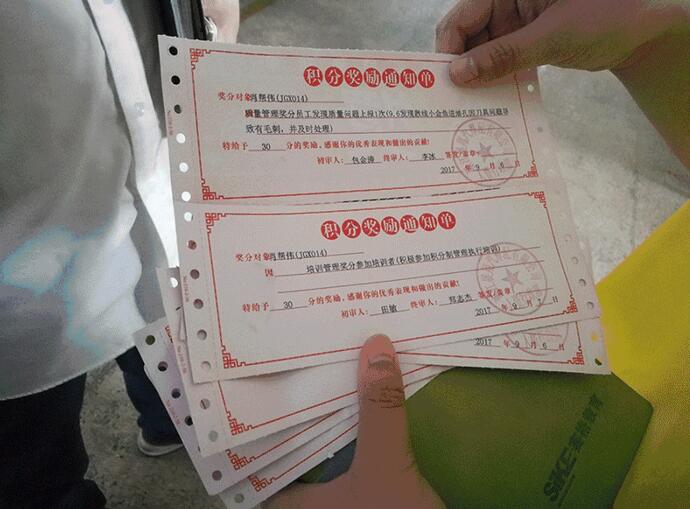 积分奖励通知单
奖分对象肖帮伟(JGX014)
质量管理奖分员工发现质量问题上报1次(9.6发现散线小金鱼进油孔因刀具问题导
致有毛刺，并及时处理)
特给予 30 分的奖励，感谢你的优秀表现和做出的贡献!
初审人： 包金涛 终审人： 李冰 签发/盖章：
2017 年 9 月 6 日
积分奖励通知单
奖分对象肖帮伟(JGX014)
因 培训管理奖分参加培训者(积极参加积分制管理执行培训)
特给予 30 分的奖励，感谢你的优秀表现和做出的贡献:
初审人： 田敏 终审人： 郑志杰 签发/盖章：
2017 年 9 月 7 日
2017 年 9 月 6 日